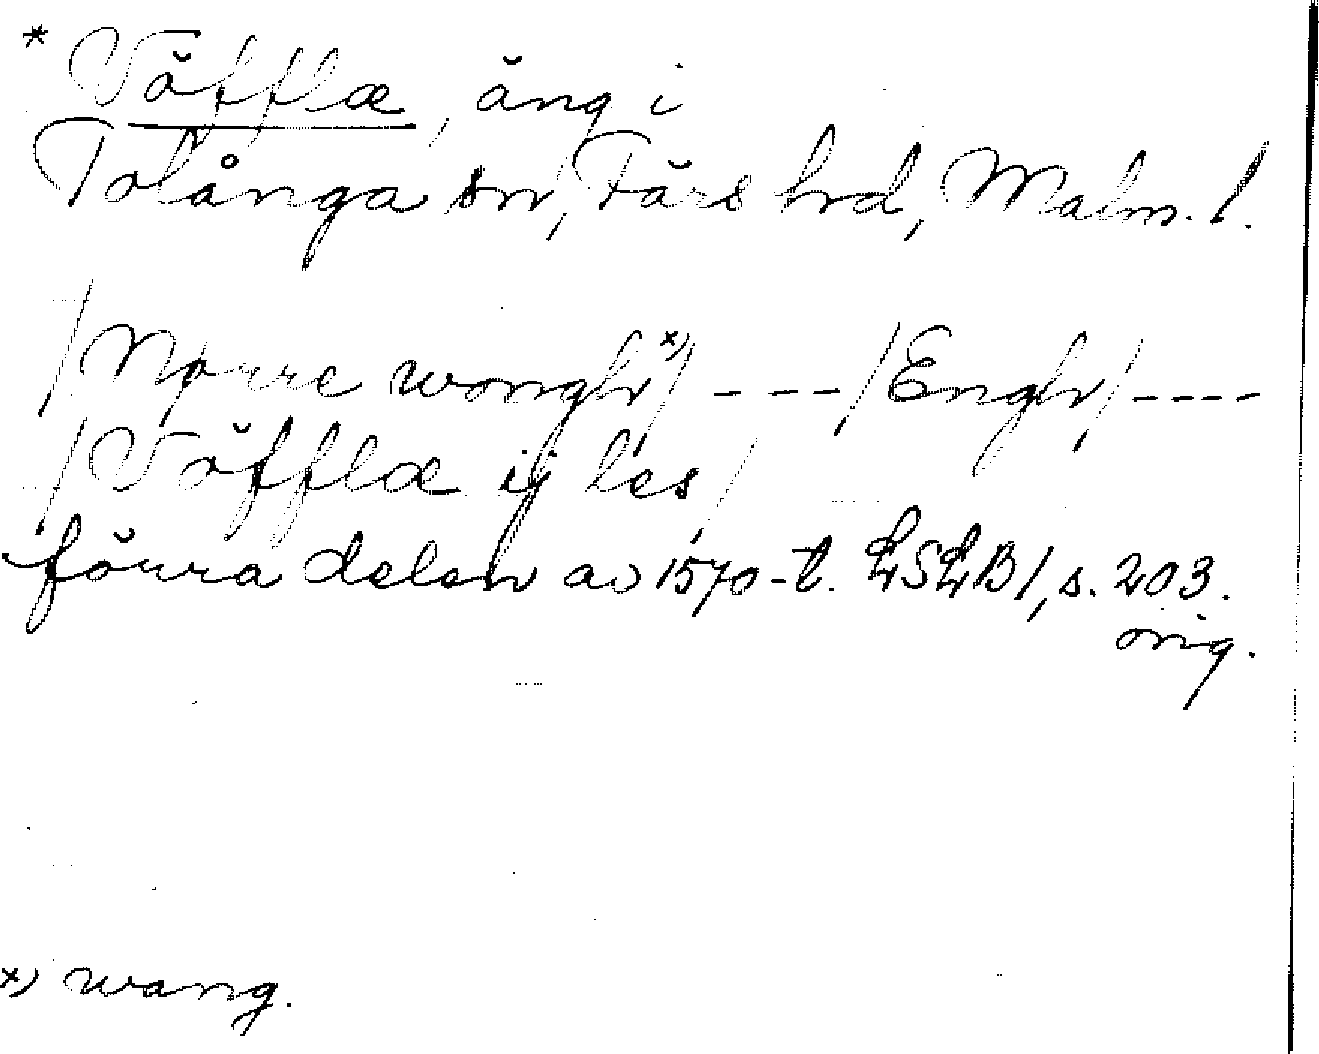 * Töfflæ, äng i
Tolånga sn, Färs hrd, Malm. l.
/Nørre wongh x)/ ---- /Engh/ ----
/Töfflæ ij les/
förra delen av 1570-t. LSLB 1, s. 203.
orig.
x) wang.